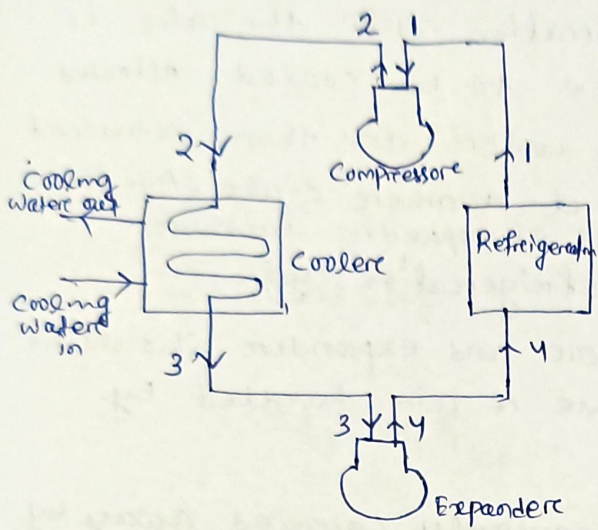 2 1
2
Compressore
1
Cooling
Watere out
Coolere
Refreigeration
Cooling
Watere
in
3
4
3 4
Expandere